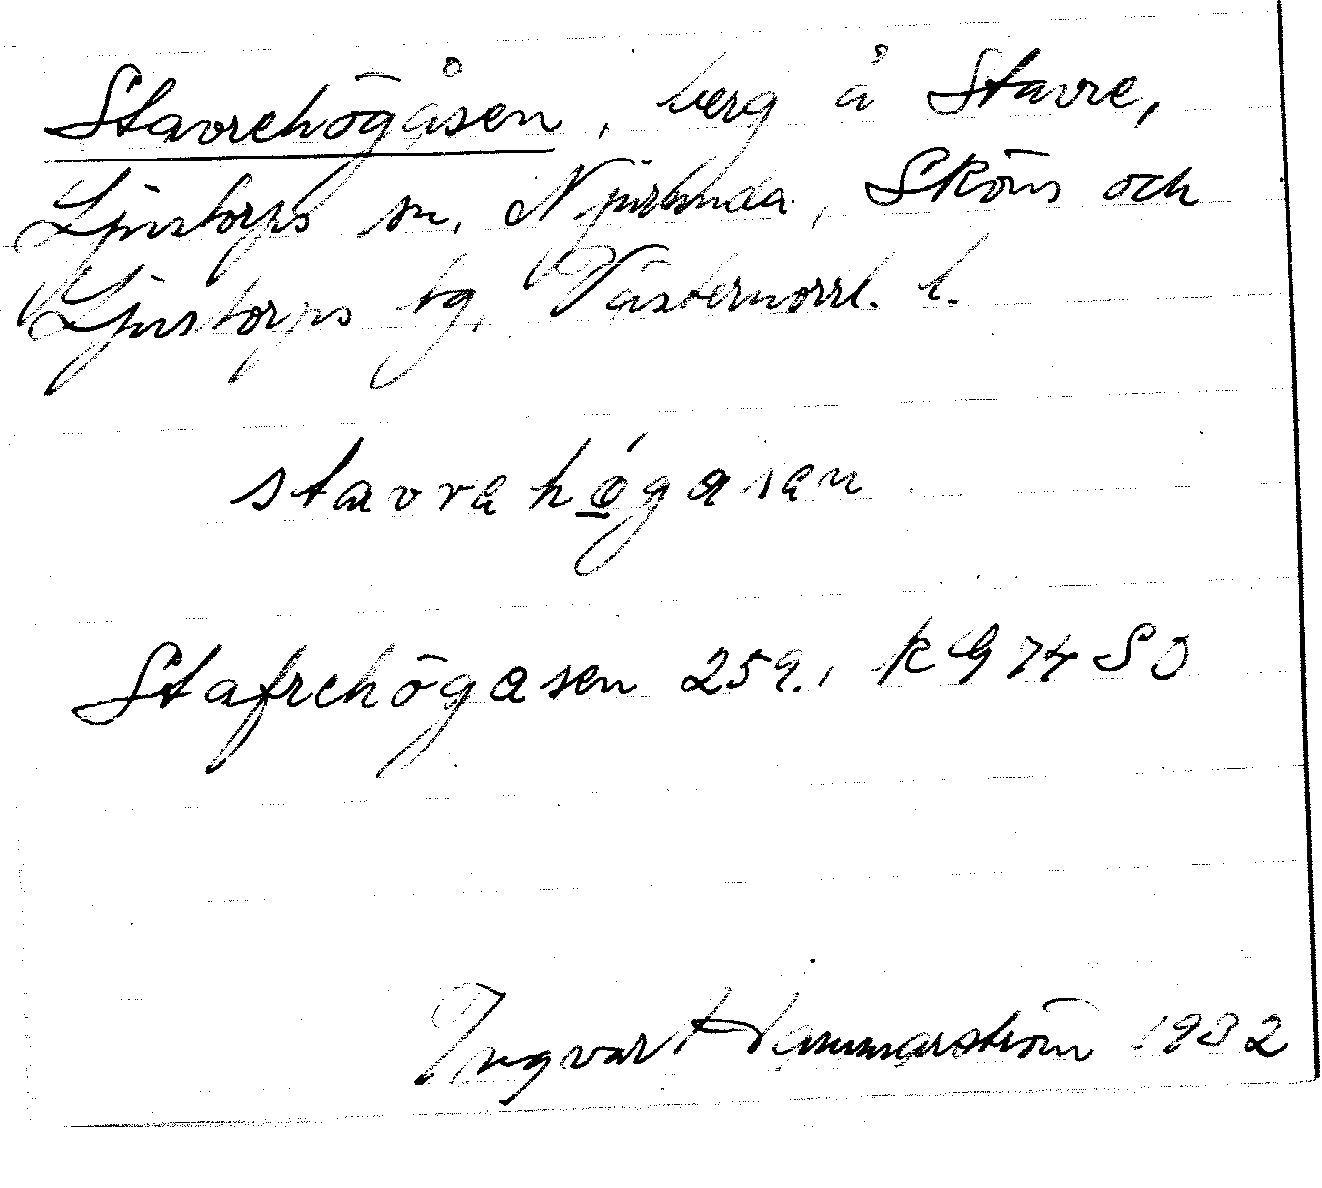 Stavrehögåsen, berg å Stavre,
Ljustorps sn, Njurunda, Sköns och
Ljustorps tg, Västernorrl. l.
stavrahǿgasan
Stafrehögåsen 259., k G 74 SO
Ingvar Hammarström 1932